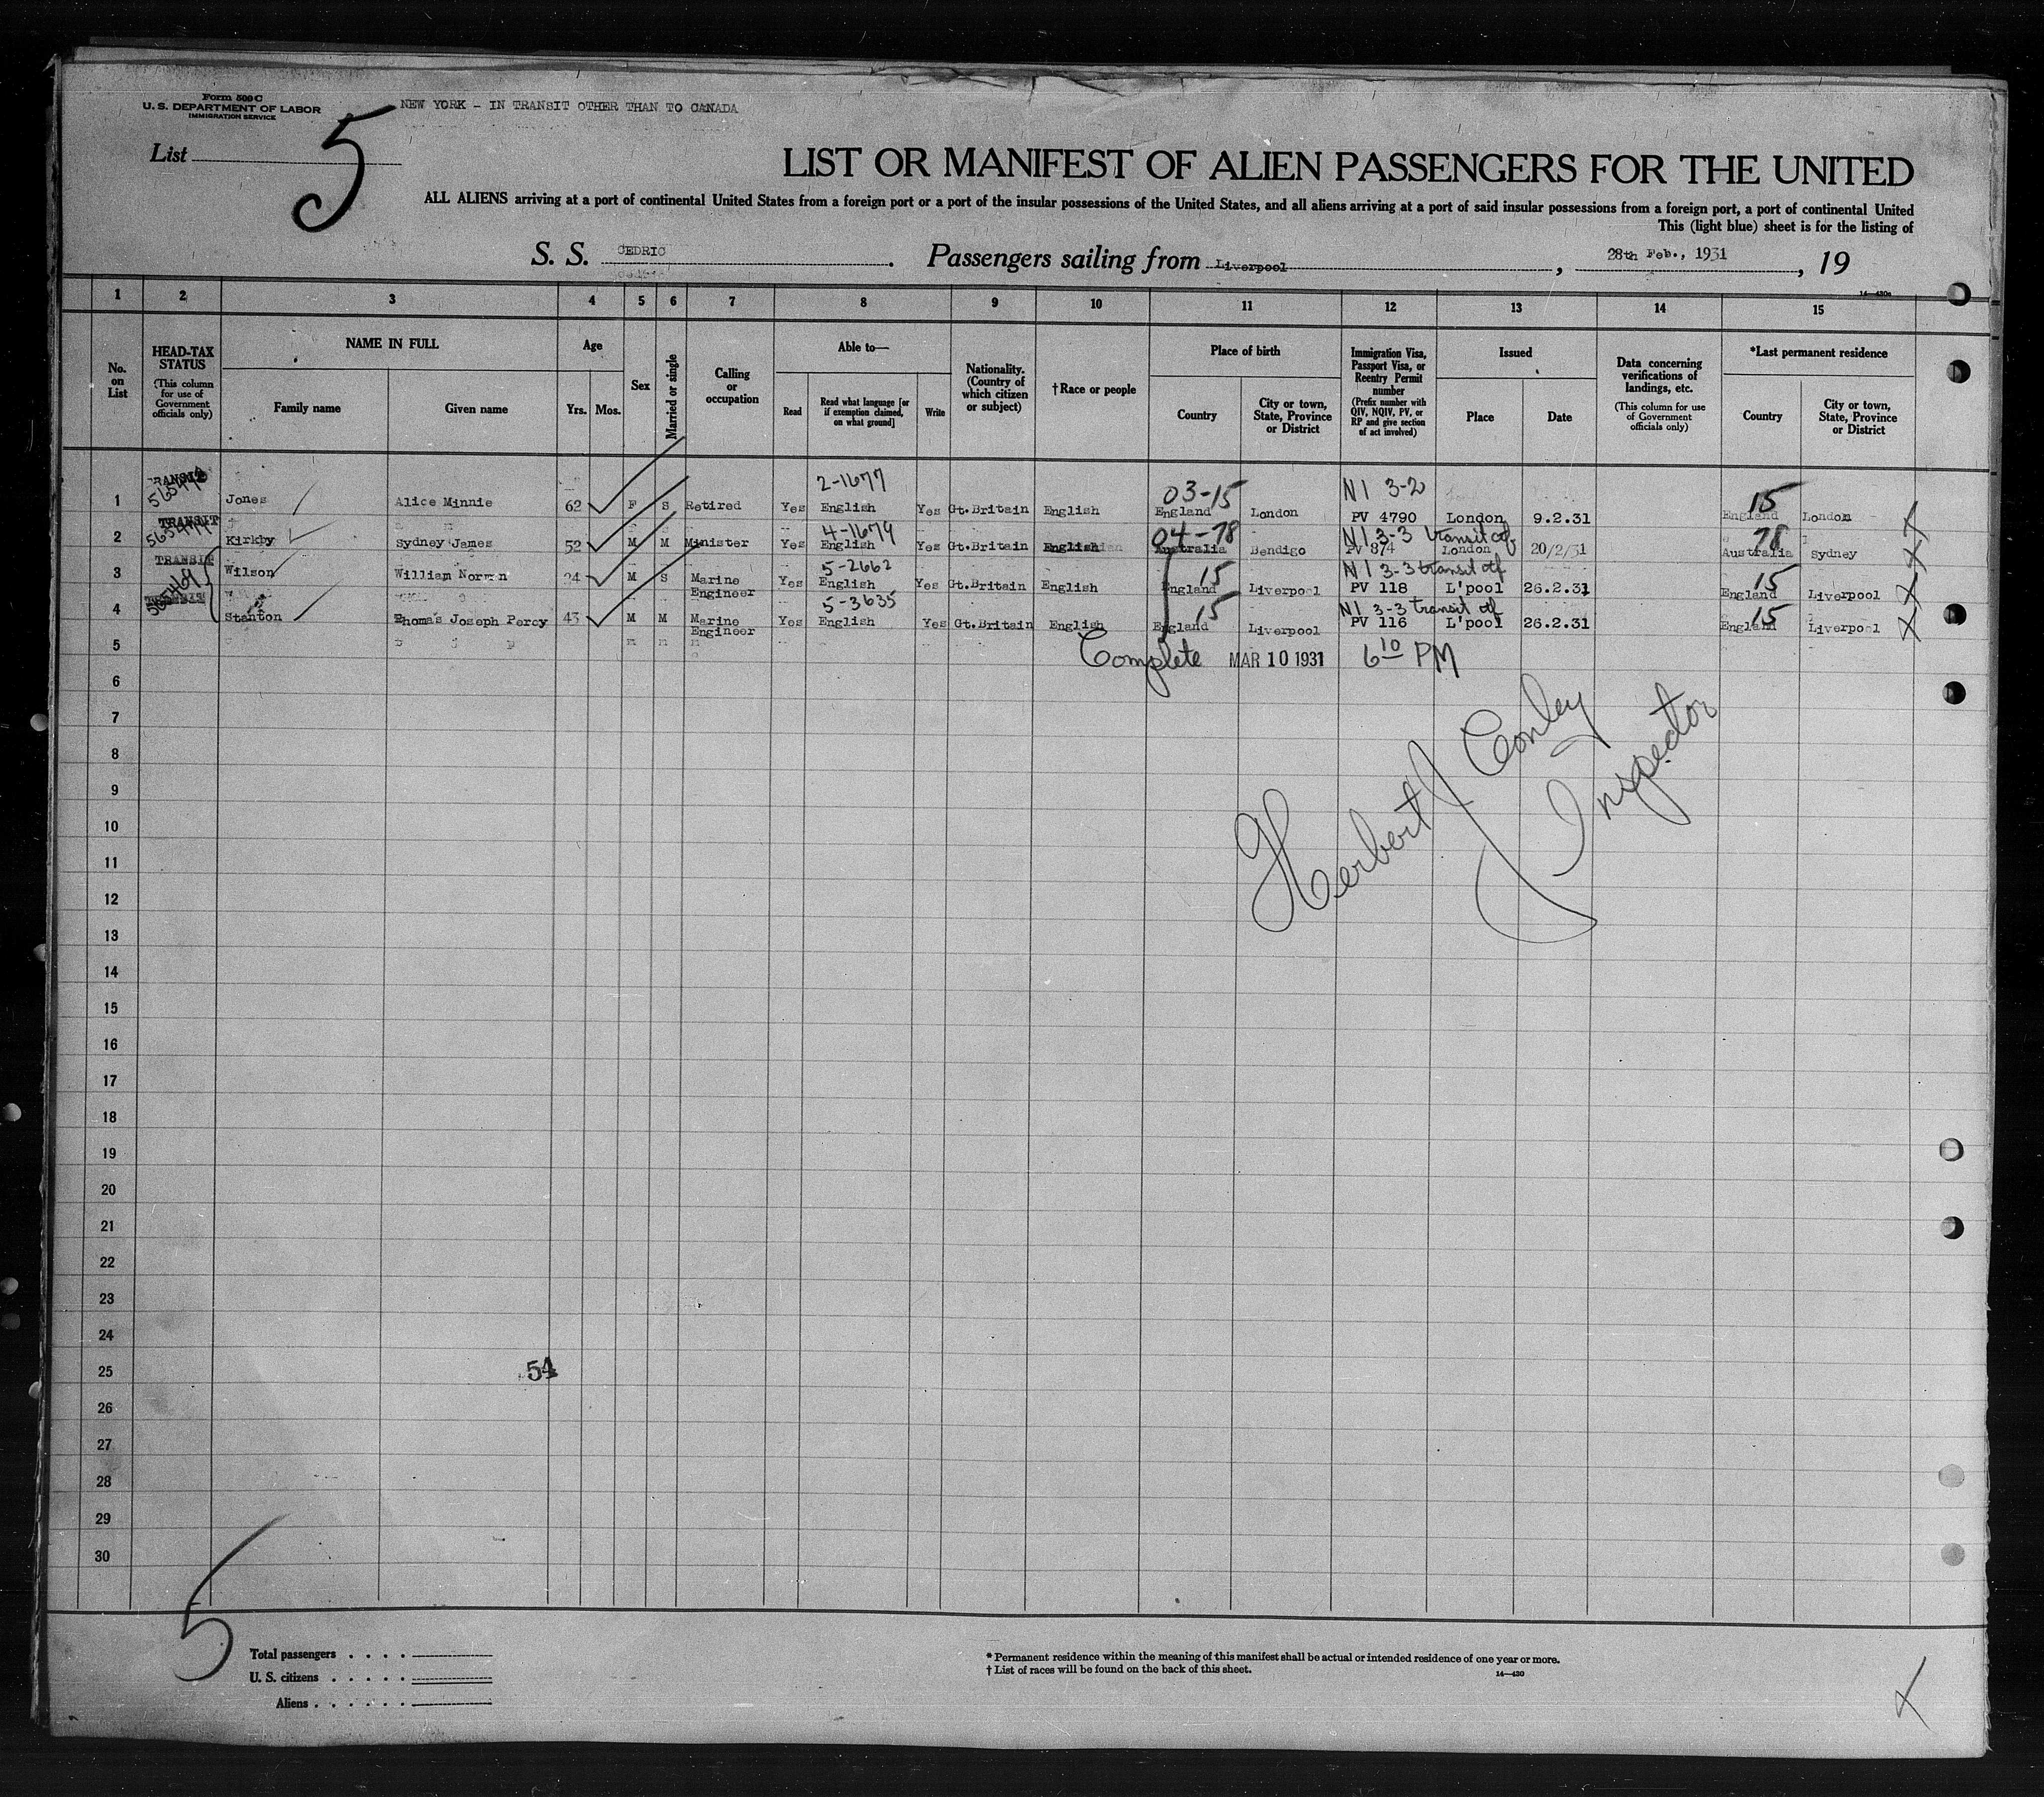 Form 500 C
U. S. DEPARTMENT OF LABOR
IMMIGRATION SERVICE
NEW YORK - IN TRANSIT OTHER THAN TO CANADA
List 5
LIST OR MANIFEST OF ALIEN PASSENGERS FOR THE UNITED
ALL ALIENS arriving at a port of continental United States from a foreign port or a port of the insular possessions of the United States, and all aliens arriving at a port of said insular possessions from a foreign port, a port of continental United
This (light blue) sheet is for the listing of
S. S. CEDRIC. Passengers sailing from Liverpool, 28th Feb., 1931, 19
14—430a
1 2 3 4 5 6 7 8 9 10 11 12 13 14 15
No. on List
HEAD-TAX STATUS (This column for use of Government officials only)
NAME IN FULL
Family name Given name
Age
Yrs. Mos.
Sex
Married or single
Calling or occupation
Able to—
Read Read what language [or if exemption claimed, on what ground] Write
Nationality. (Country of which citizen or subject)
†Race or people
Place of birth
Country City or town, State, Province or District
Immigration Visa, Passport Visa, or Reentry Permit number (Prefix number with QIV, NQIV, PV, or RP and give section of act involved)
Issued
Place Date
Data concerning verifications of landings, etc. (This column for use of Government officials only)
*Last permanent residence
Country City or town, State, Province or District
TRANSIT 2-1677 03-15 N1 3-2 15
1 Jones Alice Minnie 62 F S Retired Yes English Yes Gt.Britain English England London PV 4790 London 9.2.31 England London
TRANSIT 4-1679 04-78 N1 3-3 transit of 78
2 Kirkby Sydney James 52 M M Minister Yes English Yes Gt.Britain English Australia Bendigo PV 874 London 20/2/31 Australia Sydney
TRANSIT 5-2662 15 N1 3-3 transit of 15
3 Wilson William Norman 24 M S Marine Engineer Yes English Yes Gt.Britain English England Liverpool PV 118 L'pool 26.2.31 England Liverpool
TRANSIT 5-3635 15 N1 3-3 transit of 15
4 Stanton Thomas Joseph Percy 43 M M Marine Engineer Yes English Yes Gt.Britain English England Liverpool PV 116 L'pool 26.2.31 England Liverpool
5 Complete MAR 10 1931 6 10 PM
6
7
8
9
Herbert J Conley
Inspector
10
11
12
13
14
15
16
17
18
19
20
21
22
23
24
25 54
26
27
28
29
30
5
Total passengers
U. S. citizens
Aliens
* Permanent residence within the meaning of this manifest shall be actual or intended residence of one year or more.
† List of races will be found on the back of this sheet. 14—430